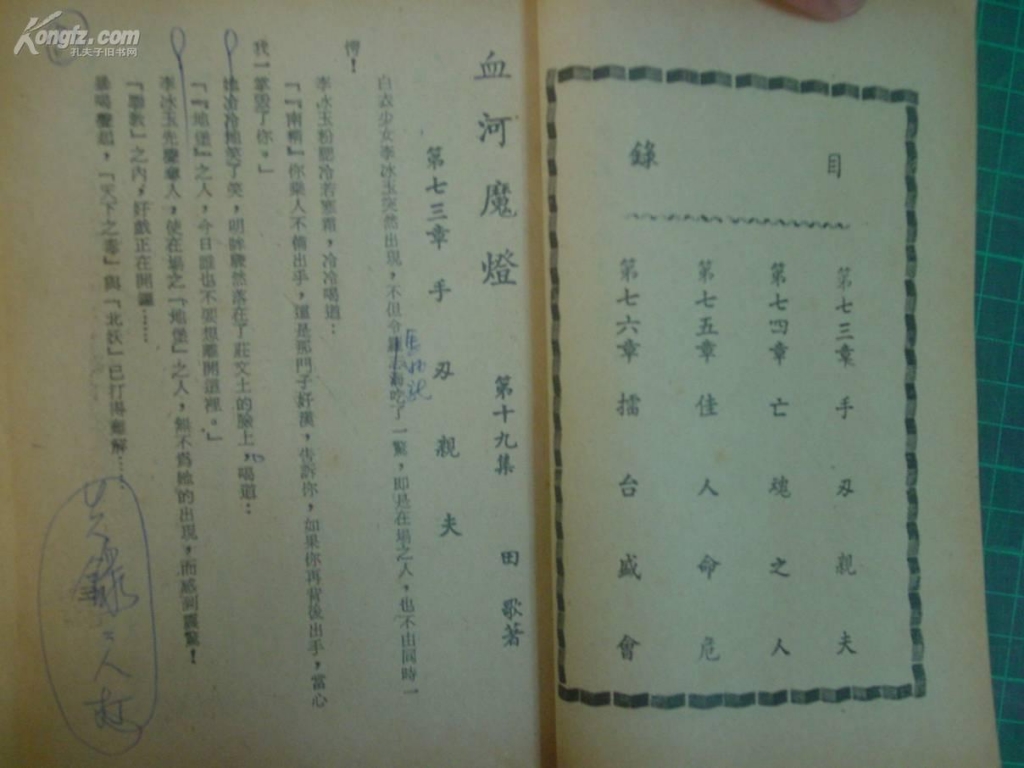 Kongfz.com
孔夫子旧书网
目錄
第七三章 手刃親夫
第七四章 亡魂之人
第七五章 佳人命危
第七六章 擂台盛會
血河魔燈 第十九集 田歌著
第七三章 手刃親夫
白衣少女李冰玉突然出現,不但令吃了一驚,即是在場之人,也不由同時一
愕!
李冰玉粉臉冷若寒霜,冷冷喝道:
「『南嘲』你業人不備出手,還是那門子好漢,告訴你,如果你再背後出手,當心
我一掌劈了你。」
她冷冷地笑了笑,明眸驟然落在了莊文士的臉上,喝道:
「『地堡』之人,今日誰也不要想離開這裡。」
李冰玉先聲奪人,使在場之『地堡』之人,無不爲她的出現,而感到震驚!
「聯教」之內,好戲正在開鑼……
暴喝聲起,「天下之毒」與「北妖」已打得難解……